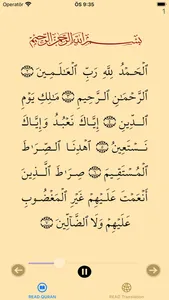 Operatör 9:35
1
بِسْمِ ٱللَّهِ ٱلرَّحْمَٰنِ ٱلرَّحِيمِ
ٱلْحَمْدُ لِلَّهِ رَبِّ ٱلْعَٰلَمِينَ ۝
ٱلرَّحْمَٰنِ ٱلرَّحِيمِ ۝ مَٰلِكِ يَوْمِ
ٱلدِّينِ ۝ إِيَّاكَ نَعْبُدُ وَإِيَّاكَ
نَسْتَعِينُ ۝ ٱهْدِنَا ٱلصِّرَٰطَ
ٱلْمُسْتَقِيمَ ۝ صِرَٰطَ ٱلَّذِينَ
أَنْعَمْتَ عَلَيْهِمْ غَيْرِ ٱلْمَغْضُوبِ
عَلَيْهِمْ وَلَا ٱلضَّآلِّينَ ۝
READ QURAN READ Translation